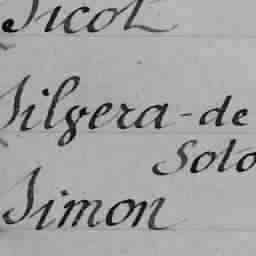 Sicot
Silvera-de
Soto
Simon